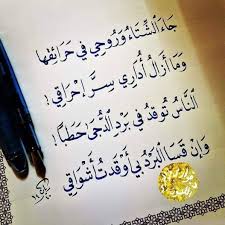 جَاءَ الشِّتَاءُ وَرُوحِي فِي حَرَائِقِهَا
وَمَا أَزَالُ أُدَارِي سِرَّ إِحْرَاقِي!
النَّاسُ تُوقِدُ فِي بَرْدِ الدُّجَى حَطَبًا!
وَإِنْ قَسَا البَرْدُ بِي أَوْقَدتُ أَشْوَاقِي